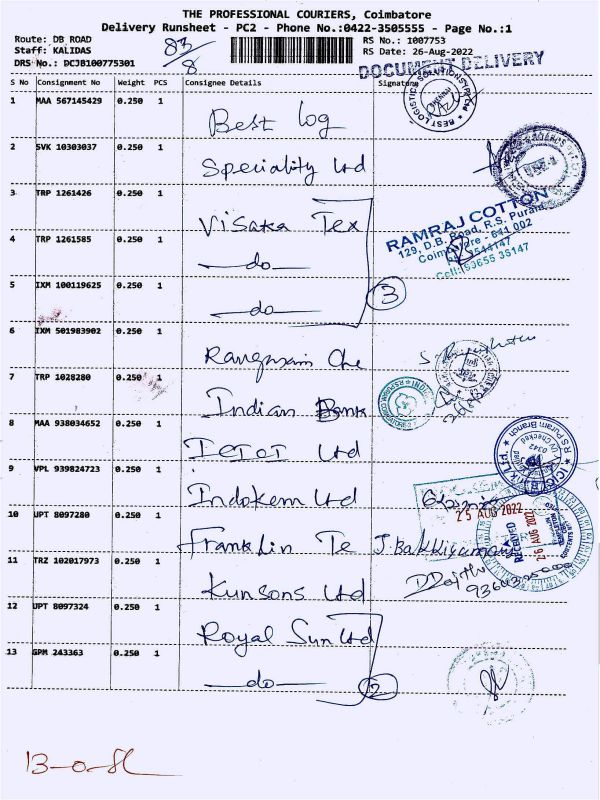 THE PROFESSIONAL COURIERS, Coimbatore
Delivery Runsheet - PC2 - Phone No.:0422-3505555 - Page No.:1
Route: DB ROAD
Staff: KALIDAS
DRS No.: DCJB100775301
83/8
RS No.: 1007753
RS Date: 26-Aug-2022
DOCUMENT DELIVERY
S No Consignment No Weight PCS Consignee Details Signature
1 MAA 567145429 0.250 1 Best log
2 SVK 10303037 0.250 1 Speciality Ltd
3 TRP 1261426 0.250 1 Visaka Tex
4 TRP 1261585 0.250 1 —do—
5 IXM 100119625 0.250 1 —do—
3
RAMRAJ COTTON
129, D.B. Road, R.S. Puram
Coimbatore - 641 002
Cell: 93655 35147
6 IXM 501983902 0.250 1
7 TRP 1028280 0.250 1 Indian Bank
8 MAA 938034652 0.250 1 ICICI Ltd
9 VPL 939824723 0.250 1 Indokem Ltd
25 AUG 2022
RECEIVED
26 AUG 2022
10 UPT 8097280 0.250 1 Franklin Te
11 TRZ 102017973 0.250 1 Kunsons Ltd
12 UPT 8097324 0.250 1 Royal Sun Ltd
13 GPM 243363 0.250 1 —do—
2